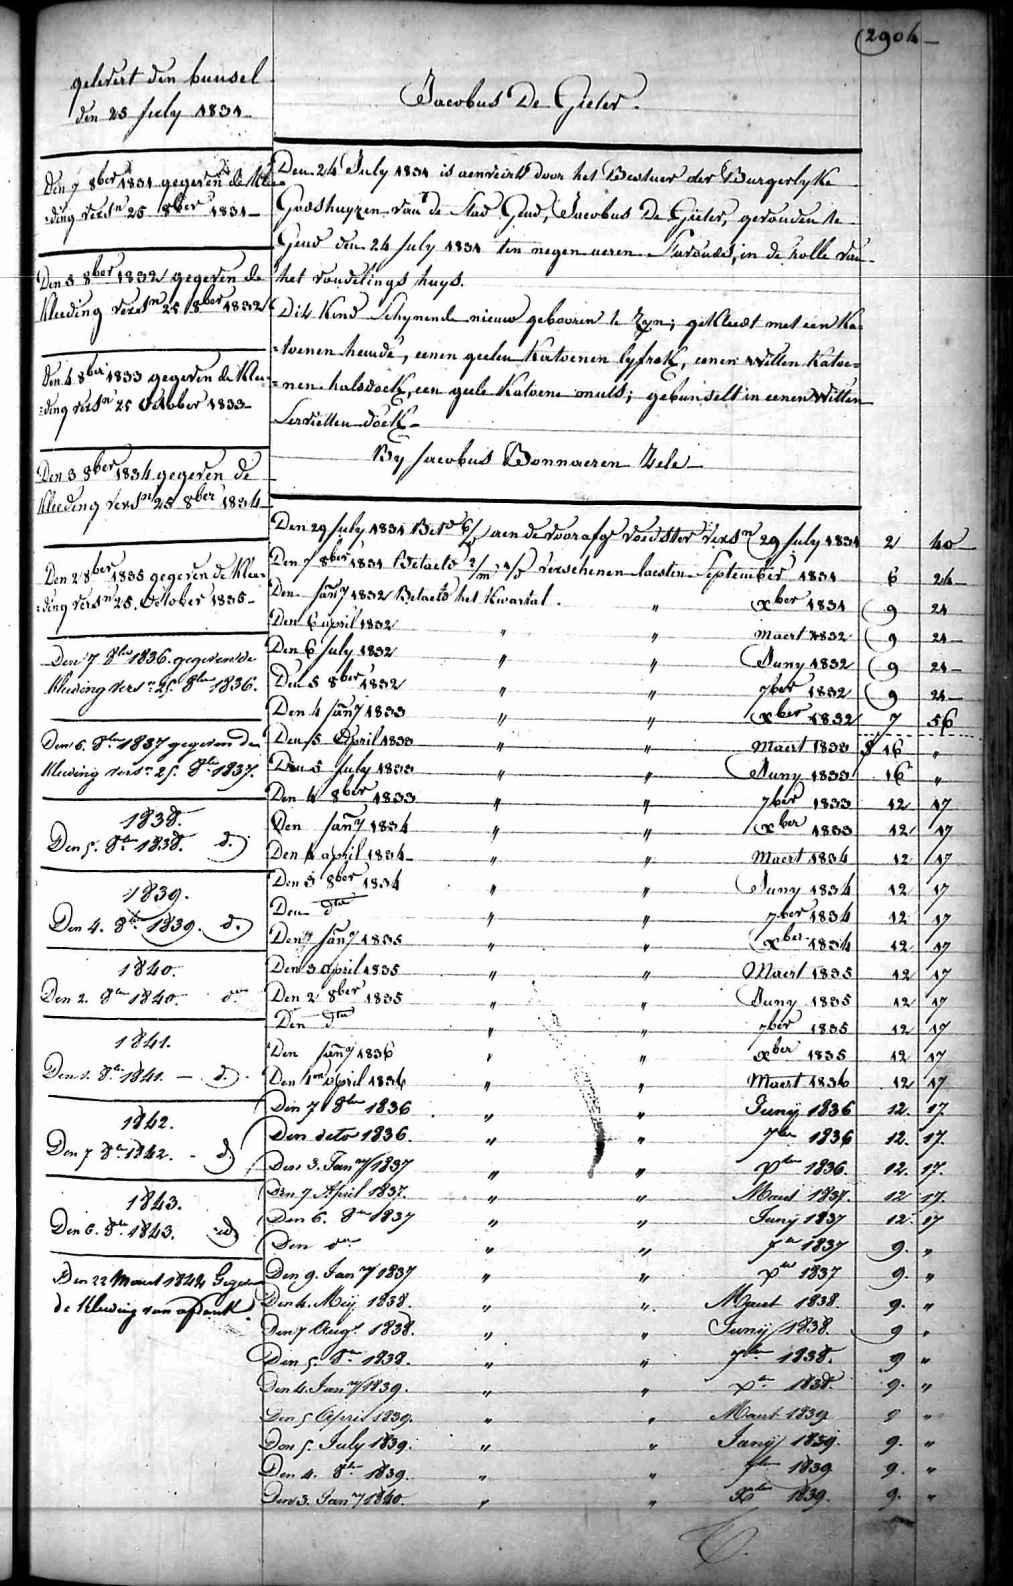 2904
gelevert den bunsel
den 25 July 1831
Jacobus De Gieter.
Den 7 8ber 1831 gegeven de klee
=ding versn 25 8ber 1831
Den 5 8ber 1832 gegeven de
kleeding versn 25 8ber 1832
Den 4 8ber 1833 gegeven de klee
=ding versn 25 October 1833
Den 3 8ber 1834 gegeven de
kleeding versn 25 8ber 1834
Den 2 8ber 1835 gegeven de klee
=ding versn 25 October 1835
Den 7 8ber 1836 gegeven de
kleeding versn 25 8ber 1836.
Den 6. 8ber 1837 gegeven den
kleeding versn 25. 8ber 1837.
1838.
Den 5. 8r 1838. d.)
1839.
Den 4. 8r 1839. d.)
1840.
Den 2. 8r 1840.
1841.
Den 1. 8r 1841. — d.)
1842.
Den 7 8r 1842. - d.)
1843.
Den 6. 8r 1843. d)
Den 22 Maert 1844 Gegeven
de kleeding van
Den 24 July 1831 is aenveirt door het Bestuer der Burgerlyke
Godshuyzen van de Stad Gend, Jacobus De Gieter, gevonden te
Gend den 24 July 1831 ten negen ueren s'avonds, in de rolle van
het vondelings huys.
Dit Kind Schynende nieuw gebooren te zyn; gekleedt met een Ka-
=toenen hemde, eenen geelen Katoenen lyfrok, eenen witten Katoe=
=nen halsdoek, een geele Katoene muts; gebunselt in eenen Witten
Servietten doek
By Jacobus Bonnaeren Zele
Den 29 July 1831 aen de voorafge voedster versn 29 July 1831 2 40
Den 7 8ber 1831 Betaelt verschenen laesten September 1831 6 24
Den Jany 1832 Betaelt het Kwartal. " xber 1831 9 24
Den 6 april 1832 " " maert 1832 9 24
Den 6 July 1832 " " Juny 1832 9 24
Den 5 8ber 1832 " " 7ber 1832 9 24
Den 4 Jany 1833 " " xber 1832 7 56
Den 5 April 1833 " " Maert 1833 16 "
Den 5 July 1833 " " Juny 1833 16 "
Den 4 8ber 1833 " " 7ber 1833 12 17
Den Jany 1834 " " xber 1833 12 17
Den 4 april 1834 " " Maert 1834 12 17
Den 3 8ber 1834 " " Juny 1834 12 17
Den dto " " 7ber 1834 12 17
Den Jany 1835 " " xber 1834 12 17
Den 3 April 1835 " " Maert 1835 12 17
Den 2 8ber 1835 " " Juny 1835 12 17
Den dto " " 7ber 1835 12 17
Den Jany 1836 " " xber 1835 12 17
Den 4en April 1836 " " Maert 1836 12 17
Den 7 8ber 1836 " " Junij 1836 12. 17.
Den deto 1836. " " 7ber 1836 12. 17.
Den 3. Jany 1837 " " xber 1836. 12. 17.
Den 7 April 1837. " " Maert 1837. 12 17.
Den 6. 8r 1837 " " Junij 1837 12. 17
Den " " 7r 1837 9. "
Den 9. Jany 1837 " " xber 1837 9. "
Den 4. Meij 1838. " " Maert 1838. 9. "
Den 7 Augt 1838. " " Junij 1838. 9 "
Den 5. 8r 1838. " " 7ber 1838. 9 "
Den 4. Jany 1839. " " xr 1838. 9. "
Den 5 April 1839. " " Maert 1839 9 "
Den 5. July 1839. " " Junij 1839. 9. "
Den 4. 8r 1839. " " 7ber 1839 9. "
Den 3. Jany 1840. " " xber 1839. 9. "